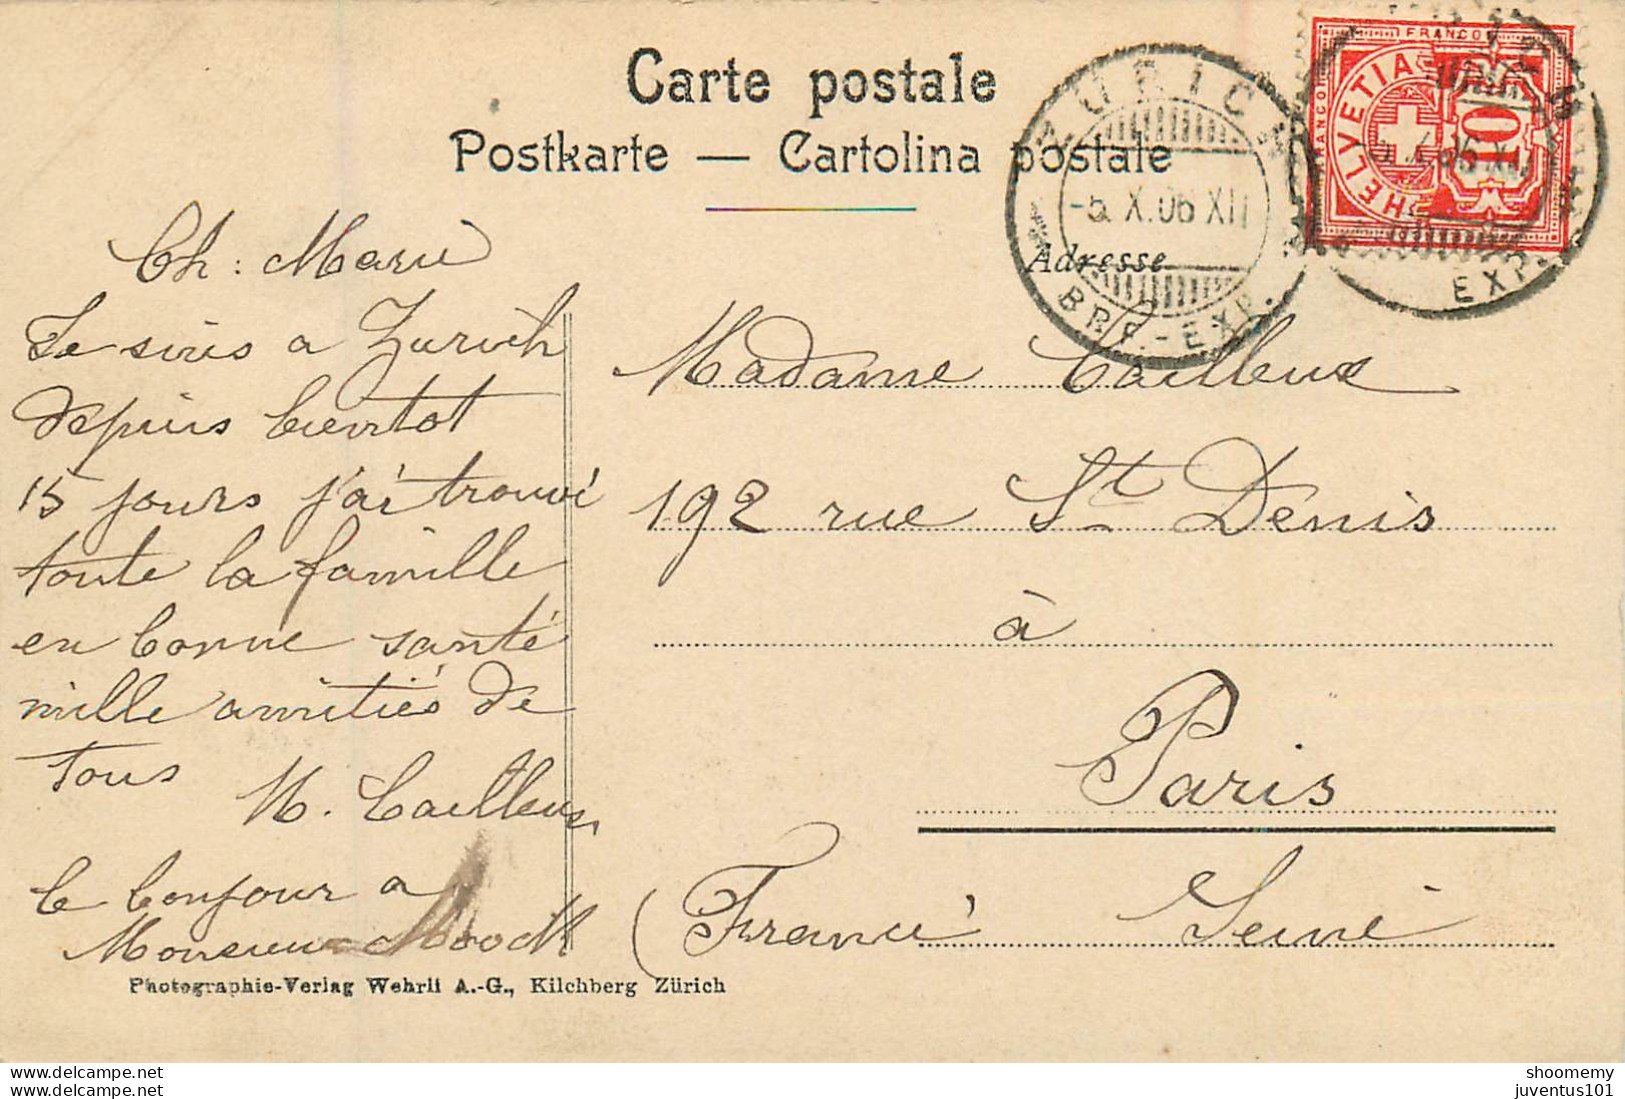 Carte postale
Postkarte — Cartolina postale
Adresse
ZÜRICH
-5. X. 06 XII
BRF.-EXP.
FRANCO
HELVETIA
10
EXP.
Ch : Marie
Je suis a Zurich
depuis bientot
15 jours j'ai trouvé
toute la famille
en bonne santé
mille amitiés de
tous
M. Cailleux
le bonjour a
Monsieur Moock
Madame Cailleux
192 rue St Denis
à
Paris
(France Seine
Photographie-Verlag Wehrli A.-G., Kilchberg Zürich
delcampe.net
delcampe.net
shoomemy
juventus101